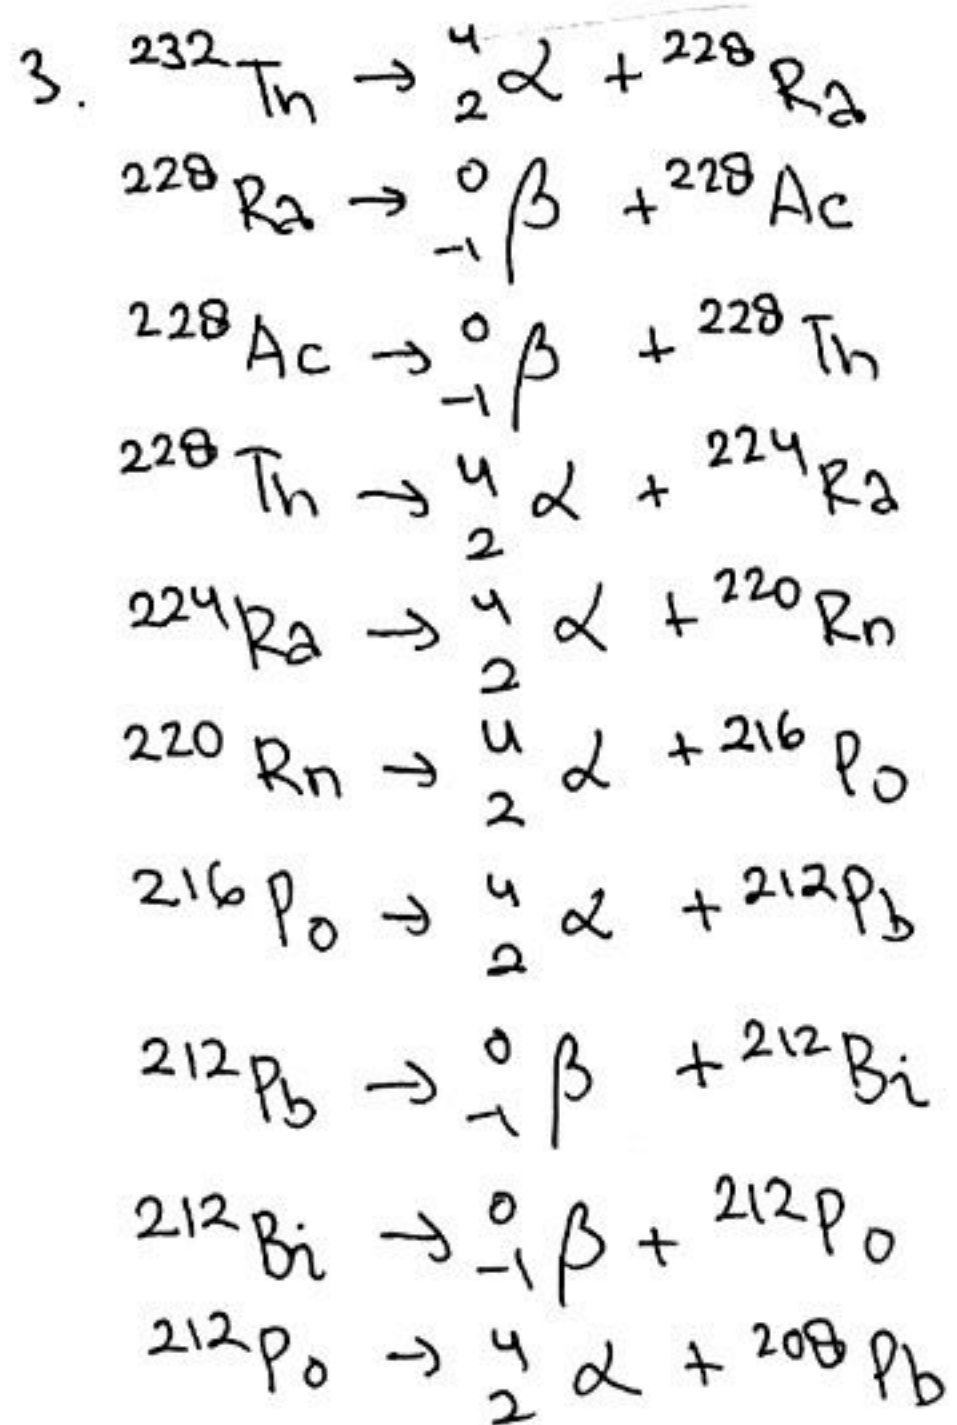 3. ²³²Th → ⁴₂α + ²²⁸Ra
²²⁸Ra → ⁰₋₁β + ²²⁸Ac
²²⁸Ac → ⁰₋₁β + ²²⁸Th
²²⁸Th → ⁴₂α + ²²⁴Ra
²²⁴Ra → ⁴₂α + ²²⁰Rn
²²⁰Rn → ⁴₂α + ²¹⁶Po
²¹⁶Po → ⁴₂α + ²¹²Pb
²¹²Pb → ⁰₋₁β + ²¹²Bi
²¹²Bi → ⁰₋₁β + ²¹²Po
²¹²Po → ⁴₂α + ²⁰⁸Pb